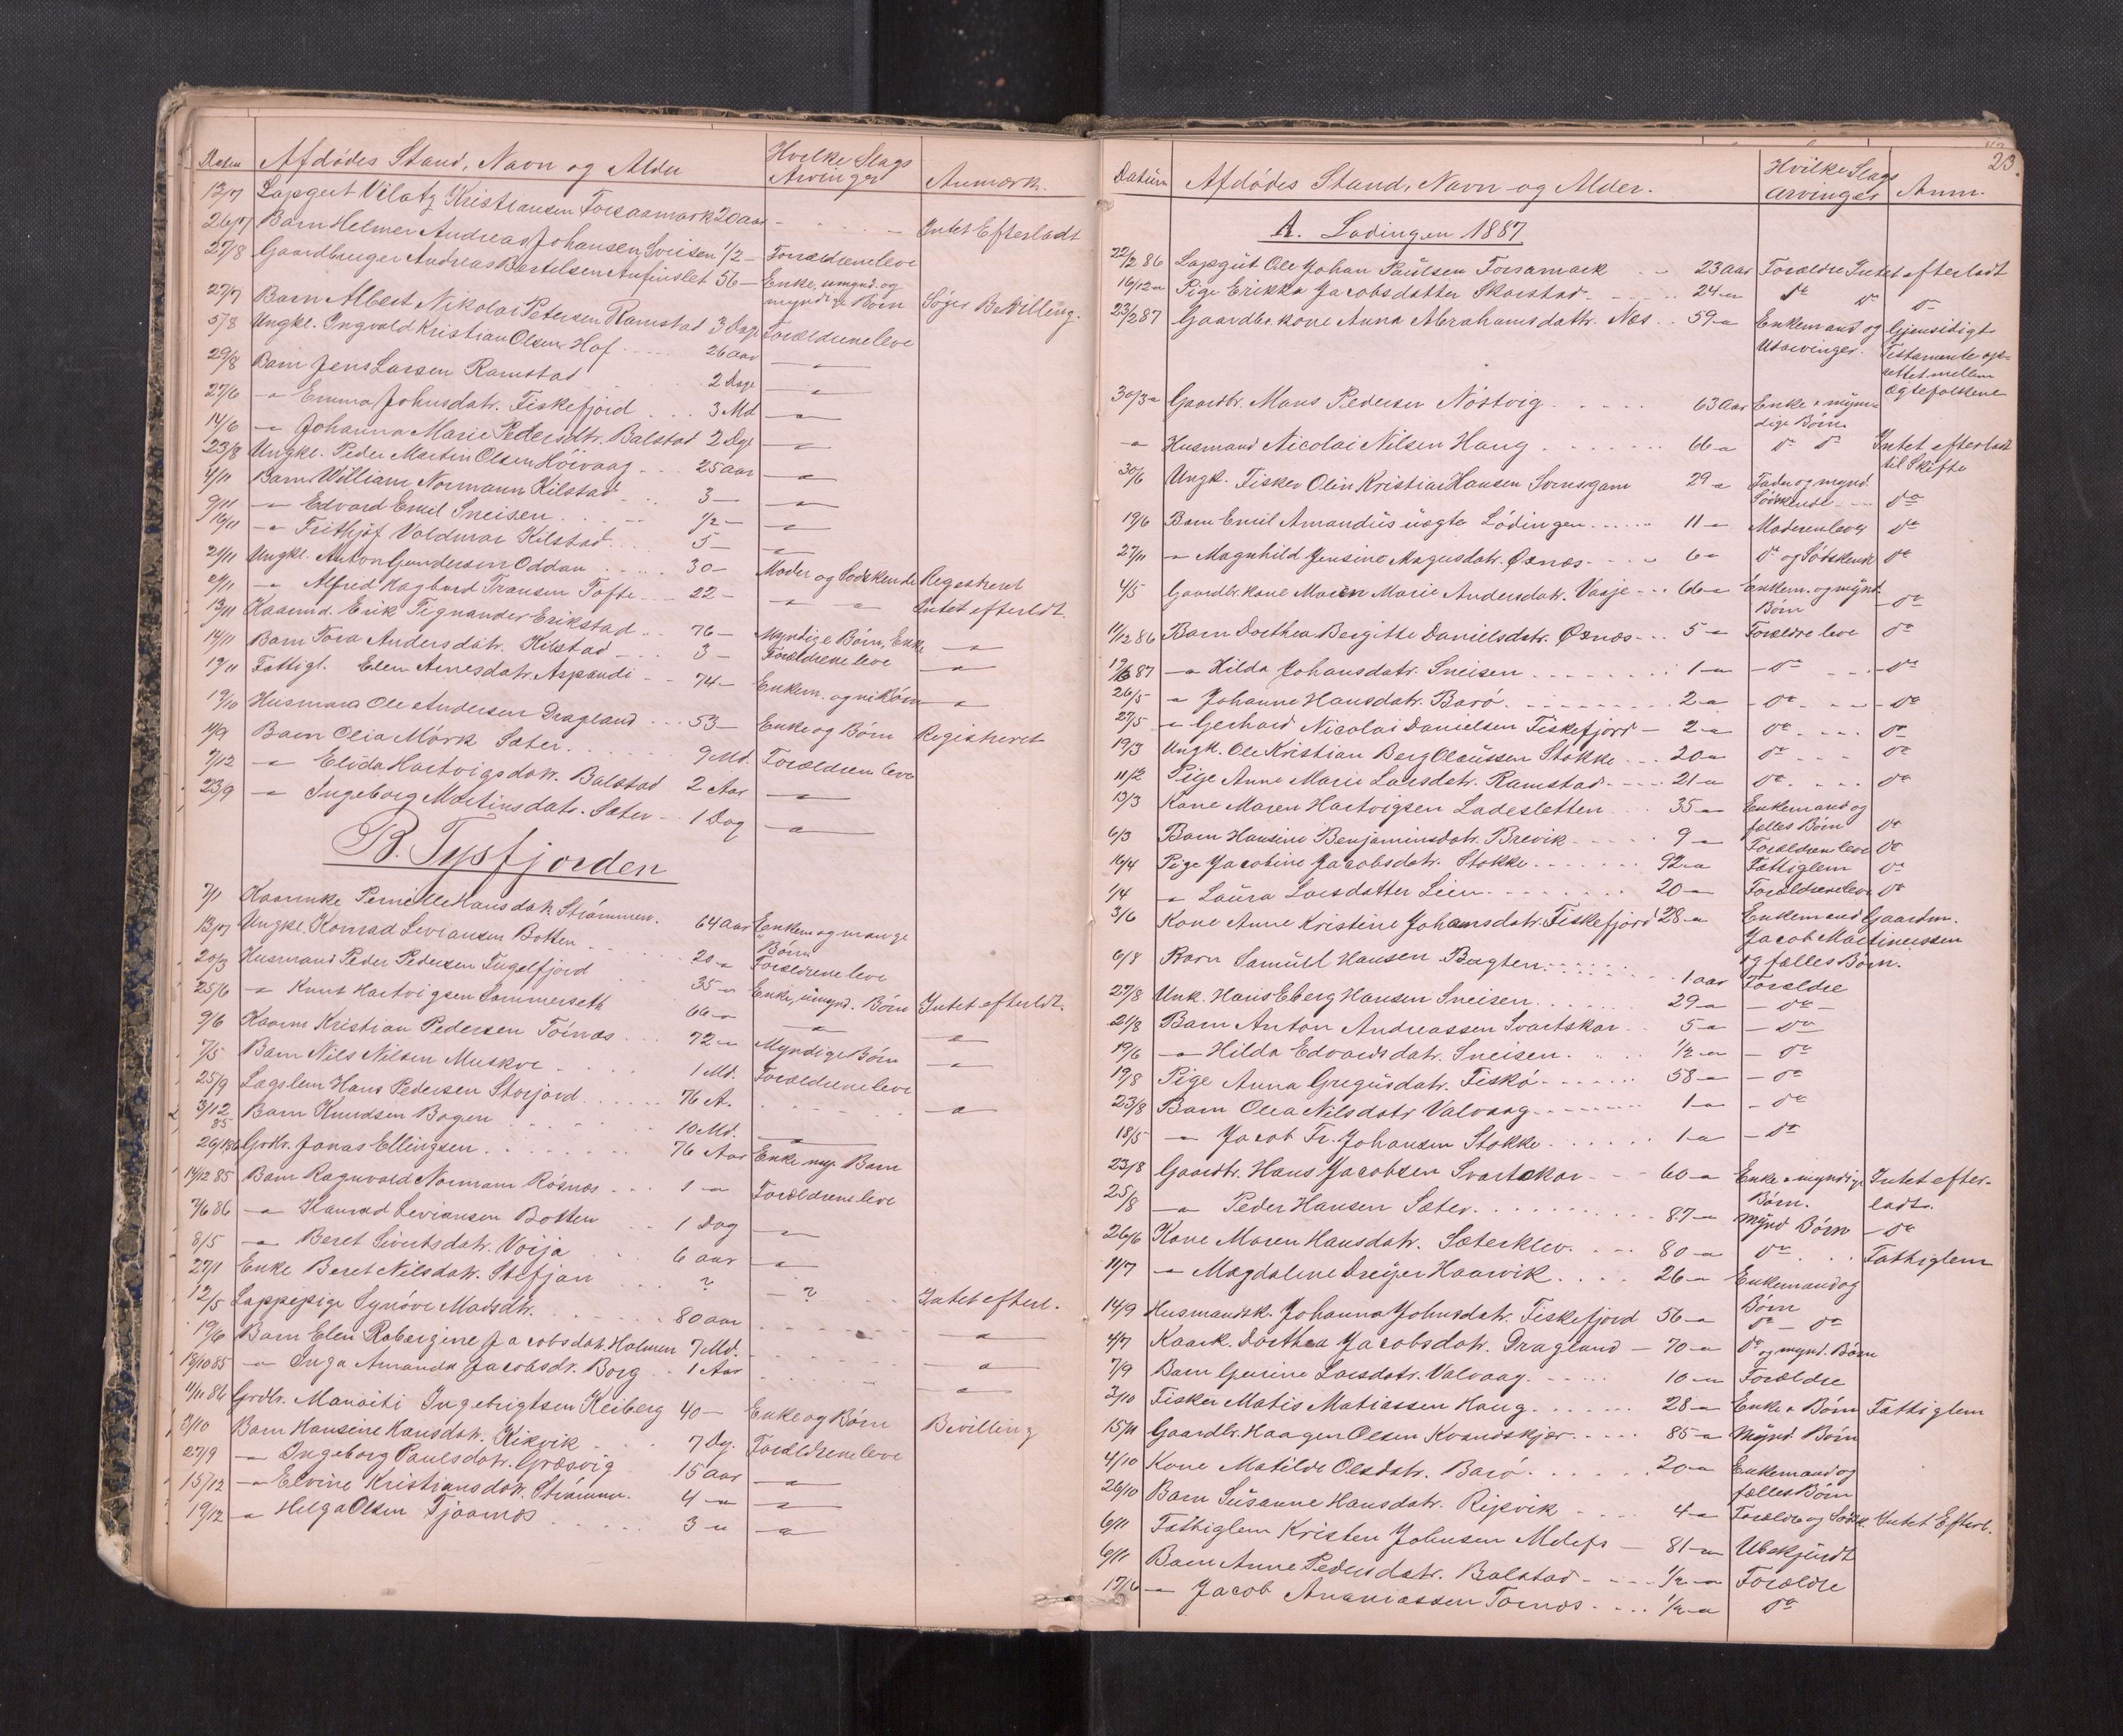 Datum Afdødes Stand, Navn og Alder Hvilke Slags Arvinger Anmærk.
12/7 Lapgut Vilatz Kristiansen Forsaamark 20 aar - - - Intet Efterladt
26/7 Barn Helmer Andreas Johansen Sneisen 1/2 — Forældrene leve
27/8 Gaardbruger Andreas Bertelsen Anfinslet 56 — Enke, umynd. og
myndige Børn Søger Bevilling.
27/7 Barn Albert Nikolai Petersen Ramstad 3 Dage Forældrene leve
5/8 Ungkl. Ingvald Kristian Olsen Hof - - - 26 aar — " —
29/8 Barn Jens Larsen Ramstad 2 Dage — " —
27/6 — " Emma Johnsdatr. Fiskefjord . . . 3 Md — " —
14/6 — " Johanna Marie Pedersdtr. Balstad 2 Dge — " —
23/8 Ungkl. Peder Martin Olsen Höivaag . . . 25 aar — " —
4/11 Barn William Normann Kilstad - - - 3 — — " —
9/11 — " Edvard Emil Sneisen . . . 1/2 — — " —
16/11 — " Frithjof Valdmar Kilstad . . . 5 — — " —
21/11 Ungkl. Anton Gundersen Oddan . . . . 30 — Moder og Sødskende Registreret
21/11 — " Alfred Hagbard Fransen Tofte . . . 22 — — " — " — Intet efterldt.
13/11 Kaarmd. Erik Tegnander Erikstad . . 76 — Myndige Børn, Enke
14/11 Barn Tora Andersdatr. Kilstad - - - 3 — Forældrene leve — " —
17/11 Fattigl. Elen Arnesdatr. Aspandi - - 74 — Enkem. og ni Børn — " —
19/10 Husmand Ole Andersen Dragland . . . 53 — Enke og Børn Registreret
14/9 Barn Olia Mörk Sæter . . . . 9 Md. Forældrene leve
7/12 — " Elida Hartvigsdatr. Balstad 2 Aar — " —
23/9 — " Ingeborg Martinsdatr. Sæter - - 1 Dag — " —
B. Tysfjorden
7/1 Kaarenke Pernille Hansdatr. Strømmen. 64 aar Enkem og mange
Børn
13/7 Ungkl. Konrad Leviansen Botten . . 20 — " Forældrene leve
20/3 Husmand Peder Pedersen Fugelfjord 35 — " Enke, umynd. Børn Intet efterldt.
25/6 — " Knut Hartvigsen Sommerseth 66 — " — " — — " —
9/6 Kaarm Kristian Pedersen Tørnæs . . . 72 — " Myndige Børn — " —
7/5 Barn Nils Nilsen Muskve . . . . . 1 Md. Forældrene leve
25/9 Lægslem Hans Pedersen Storjord . . . . . 76 A. . . . . — " —
3/12 85 Barn Knudsen Bogen . . . . . 10 Md. — " —
26/1 86 Grdbr. Jonas Ellingsen . . . . . . . . 76 Aar Enke my. Børn
14/12 85 Barn Ragnvald Normann Råsnæs . . . 1 — " Forældrene leve
7/6 86 — " Hanrad Leviansen Botten . . 1 Dag — " —
8/5 — " Beret Sivertsdatr. Voija . . . 6 aar — " —
27/1 Enke Beret Nilsdatr. Stefjan . . . ? — ? . .
12/5 Lappepige Synöve Madsdtr. . . . . . . 80 aar . . . . Intet efterl.
19/6 Barn Elen Robergine Jacobsdatr. Holmen 7 Md. . . . . — " —
18/10 85 — " Inga Amanda Jacobsdr. Borg . . 1 Aar . . . . — " —
11/11 86 Grdbr. Manaiti Ingebrigtsen Keiberg 40 — Enke og Børn Bevilling
3/10 Barn Hansine Hansdatr. Kikvik . . . 7 Dg. Forældrene leve
27/9 — " Ingeborg Paulsdatr. Græsvig 15 aar — " —
15/12 — " Elvine Kristiansdatr. Strömmen. 4 — " — " —
19/12 — " Helga Olsen Tjaarnæs . . . . . 3 " — " —
23.
Datum Afdødes Stand, Navn og Alder. Hvilke Slags Arvinger Anm.
A. Lødingen 1887
22/2 86 Lapgut Ole Johan Paulsen Forsamark - - 23 aar Forældre Intet efterladt
16/12 " Pige Erikka Jacobsdatter Skarstad - - - - 24 — " do do do
23/2 87 Gaardbr. kone Anna Abrahamsdattr. Næs . . 59 — " Enkemand og Gjensidigt
Utarvinger. Testamente op-
rettet mellem
Ægtefolkene
30/3 " Gaardbr. Mons Pedersen Nöstvig . . . . . 63 aar Enke + myn-
dige Børn
— " Husmand Nicolai Nilsen Haug . . . . . . . 66 — " do do Intet efterladt
til Skifte
30/6 Ungk. Fisker Olin Kristian Hansen Sornsgam 29 — " Fader og mynd.
Sødskende - - do
19/6 Barn Emil Amandus uægte Lödingen . . . . . 11 — " Moderen lever do
27/11 — " Magnhild Jensine Magnusdatr. Øxnæs - - - 6 " do og Sødskende do
4/5 Gaardbr. kone Maren Marie Andersdatr. Vaaje - - - 66 — " Enkem. og mynd.
Børn do
11/12 86 Barn Dorthea Bergitte Danielsdatr. Øxnæs - - - 5 — " Forældre leve do
12/6 87 — " Hilda Johansdatr. Sneisen . . . . . . . 1 — " — do . . do
26/5 — " Johanne Hansdatr. Barö . . . . . . . . 2 — " — do . . . do
27/5 — " Gerhard Nicolai Danielsen Fiskefjord — 2 — " do . . . do
19/3 Ungk. Ole Kristian Berg Olaussen Stokke . . . 20 — " do . . . do
11/2 Pige Anne Marie Larsdatr. Ramstad - - - - 21 — " do . . . do
13/3 Kone Maren Hartvigsen Ladesletten . . 35 — " Enkemand og
fælles Børn do
6/3 Barn Hansine Benjaminsdatr. Brevik . . . . . 9 — " Forældrene leve do
16/4 Pige Jacobine Jacobsdatr. Stokke . . . . . . 92 — " Fattiglem do
1/4 — " Laura Larsdatter Lien . . . . . . . . 20 — " Forældrene leve do
3/6 Kone Anne Kristine Johansdatr. Fiskefjord 28 — " Enkemand Gaardm.
Jacob Martinussen
og fælles Børn.
6/8 Barn Samuel Hansen Bugten . . . . . . . 1 aar Forældre
27/8 Unk. Hans Eberg Hansen Sneisen . . . . . . 29 — " — do —
21/8 Barn Anton Andreassen Svartskar . . 5 — " — do
19/6 — " Hilda Edvardsdatr. Sneisen . . . . 1/2 — " — do
19/8 Pige Anna Gregusdatr. Fiskö . . . . . . 58 — " — do
23/8 Barn Olea Nilsdatr Valvaag . . . . . . . 1 — " — do
18/5 — " Jacob Fr. Johansen Stokke . . . . . . 1 — " — do
23/8 Gaardbr. Hans Jacobsen Svartskar - - - 60 — " Enke + myndige Intet efter-
Børn. ladt.
25/8 — " Peder Hansen Sæter . . . . . . . . . 87 — " Mynd Børn — do
26/6 Kone Maren Hansdatr. Sæterklev . . . . 80 — " do . . . Fattiglem
11/7 — " Magdalene Dreyer Haarvik . . . . 26 — " Enkemand og
Børn
14/9 Husmandsk. Johanna Johnsdatr. Fiskefjord 56 — " do — do
4/7 Kaark. Dorthea Jacobsdatr. Dragland — 70 — " do og mynd. Børn
7/9 Barn Gurine Larsdatr. Valvaag . . . . . 10 — " Forældre
3/10 Fisker Matis Matiassen Haug . . . . . . 28 — " Enke + Børn Fattiglem
15/11 Gaardbr. Haagen Olsen Kvandskjær . . . . . 85 — " Mynd. Børn
4/10 Kone Matilde Olsdatr. Barö . . . . . . . 20 — " Enkemand og
fælles Børn
26/10 Barn Susanne Hansdatr. Ripvik . . . . 4 — " Forældre og Sødsk. Intet Efterl.
6/11 Fattiglem Kristen Johnsen — 81 — " Ubekjendt
6/11 Barn Anne Pedersdatr. Balstad - - - - 1/2 — " Forældre
17/6 — " Jacob Ananiassen Tornæs . . . . 1/2 — " do